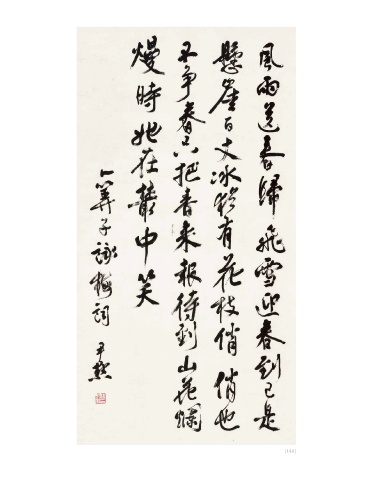 風雨送春歸飛雪迎春到已是
懸崖百丈冰猶有花枝俏俏也
不争春只把春來報待到山花爛
熳時她在叢中笑
卜算子詠梅詞 尹默